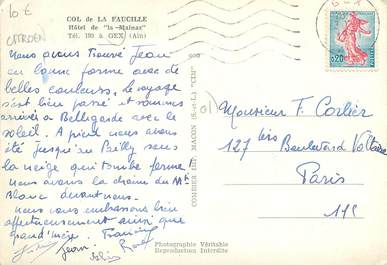 10 €
CITROEN
COL de LA FAUCILLE
Hôtel de "la Mainaz"
Tél. 180 à GEX (Ain)
Nous avons trouvé Jean
en bonne forme avec de
belles couleurs. le voyage
s'est bien passé et sommes
arrivés à Bellegarde avec le
soleil. A pied nous avons
été jusqu'au Pailly sous
la neige qui tombe ferme
nous avons la chaîne du Mt
Blanc devant nous.
nous vous embrassons bien
affectueusement ainsi que
grand'mère. Francine
Jean
Photographie Véritable
Reproduction Interdite
COMBIER IMP. MACON (S.-et-L.) "CIM"
01
GEX
0,20
Monsieur F. Corlier
127 bis Boulevard Voltaire
Paris
11e